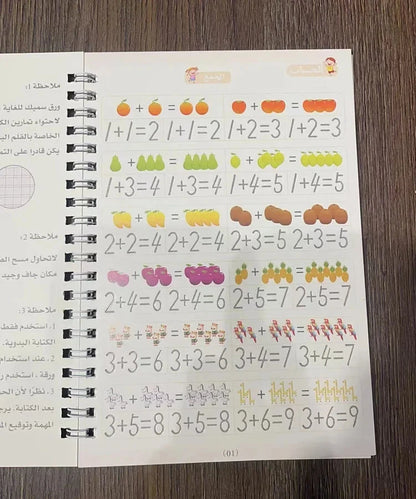 ملاحظة 1:
ورق سميك للغاية
لاحتواء تمارين
الخاصة بالقلم
يكن قادرا على
ملاحظة 2:
مكان جاف وجيد
ملاحظة 3:
1. استخدم فقط
الكتابة اليدوية.
2. عند استخدام
ورقة ، استخدم
3. نظرًا لأن
بعد الكتابة. يرجى
المهمة وتوقيع
الحساب
الجمع
+ = + =
1+1=2 1+1=2 1+2=3 1+2=3
+ = + =
1+3=4 1+3=4 1+4=5 1+4=5
+ = + =
2+2=4 2+2=4 2+3=5 2+3=5
+ = + =
2+4=6 2+4=6 2+5=7 2+5=7
+ = + =
3+3=6 3+3=6 3+4=7 3+4=7
+ = + =
3+5=8 3+5=8 3+6=9 3+6=9
(01)